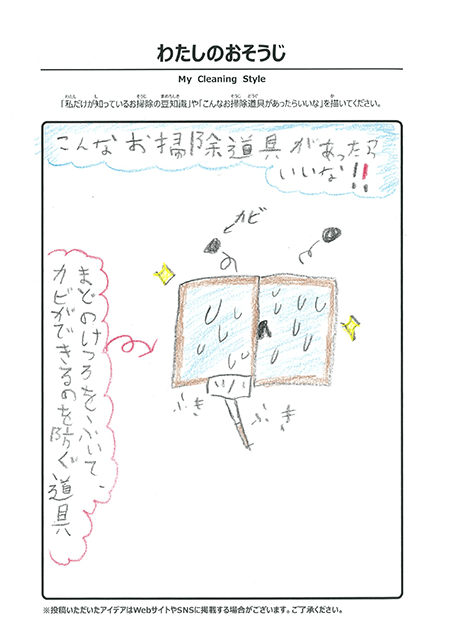 わたしのおそうじ
My Cleaning Style
「私だけが知っているお掃除の豆知識」や「こんなお掃除道具があったらいいな」を描いてください。
こんなお掃除道具があったら
いいな!!
カビ
まどのけつろを、ふいて、
カビができるのを防ぐ道具
ふき
ふき
※投稿いただいたアイデアはWebサイトやSNSに掲載する場合がございます。ご了承ください。